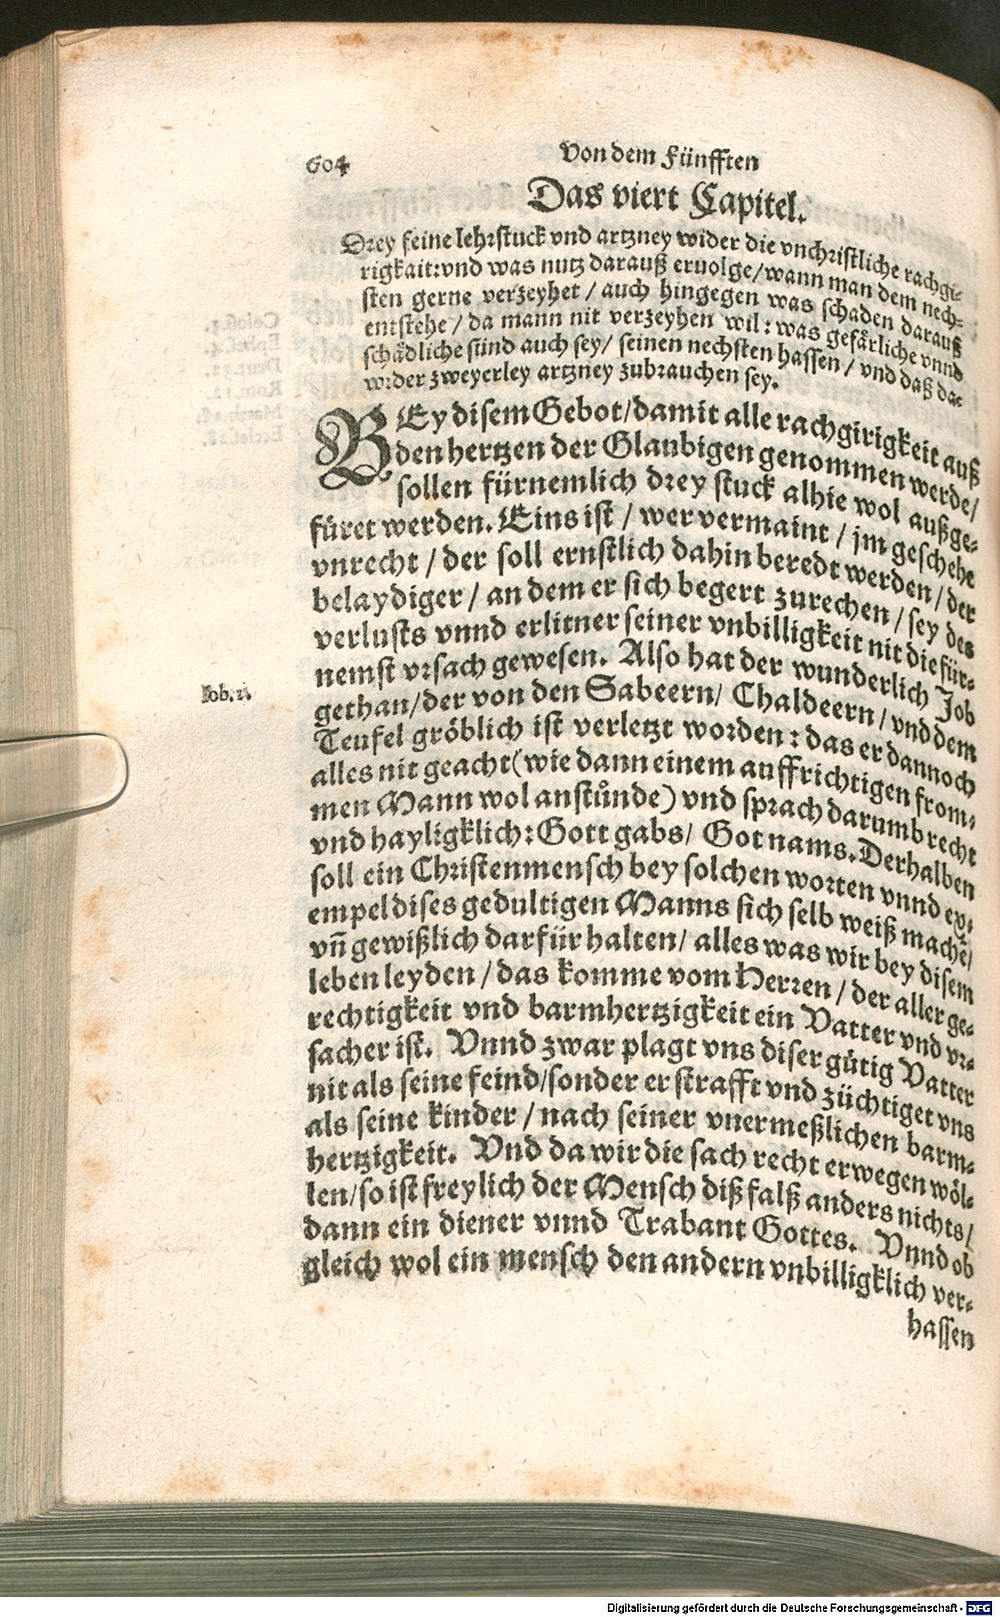 604
Von dem Fünfften
Das viert Capitel.
Drey feine lehrstuck vnd artzney wider die vnchristliche rachgi-
rigkait: vnd was nutz darauß eruolge/ wann man dem nech-
sten gerne verzeyhet / auch hingegen was schaden darauß
entstehe / da mann nit verzeyhen wil: was gefärliche vnnd
schädliche sünd auch sey/ seinen nechsten hassen / vnd daß da-
wider zweyerley artzney zubrauchen sey.
BEy disem Gebot/ damit alle rachgirigkeit auß
den hertzen der Glaubigen genommen werde/
sollen fürnemlich drey stuck alhie wol außge-
füret werden. Eins ist / wer vermaint / jm geschehe
vnrecht / der soll ernstlich dahin beredt werden / der
belaydiger / an dem er sich begert zurechen / sey des
verlusts vnnd erlitner seiner vnbilligkeit nit die für-
nemst vrsach gewesen. Also hat der wunderlich Job
Iob. 1.
gethan/ der von den Sabeern/ Chaldeern / vnd dem
Teufel gröblich ist verletzt worden: das er dannoch
alles nit geacht (wie dann einem auffrichtigen from-
men Mann wol anstůnde) vnd sprach darumb recht
vnd hayligklich: Gott gabs/ Got nams. Derhalben
soll ein Christenmensch bey solchen worten vnnd ex-
empel dises gedultigen Manns sich selb weiß machẽ/
vñ gewißlich darfür halten/ alles was wir bey disem
leben leyden / das komme vom Herren / der aller ge-
rechtigkeit vnd barmhertzigkeit ein Vatter vnd vr-
sacher ist. Vnnd zwar plagt vns diser gütig Vatter
nit als seine feind/ sonder er strafft vnd züchtiget vns
als seine kinder / nach seiner vnermeßlichen barm-
hertzigkeit. Vnd da wir die sach recht erwegen wöl-
len/ so ist freylich der Mensch diß falß anders nichts/
dann ein diener vnnd Trabant Gottes. Vnnd ob
gleich wol ein mensch den andern vnbilligklich ver-
hassen
Digitalisierung gefördert durch die Deutsche Forschungsgemeinschaft - DFG